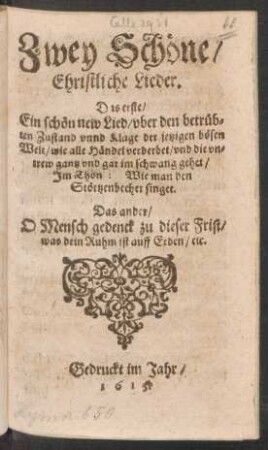 11
Zwey Schöne/
Christliche Lieder.
Das erste/
Ein schön new Lied/vber den betrüb-
ten Zustand vnnd Klage der jetzigen bösen
Welt/wie alle Händel verderbet/vnd die vn-
trew gantz vnd gar im schwang gehet/
Im Thon: Wie man den
Störtzenbecher singet.
Das ander/
O Mensch gedenck zu dieser Frist/
was dein Ruhm ist auff Erden/etc.
Gedruckt im Jahr/